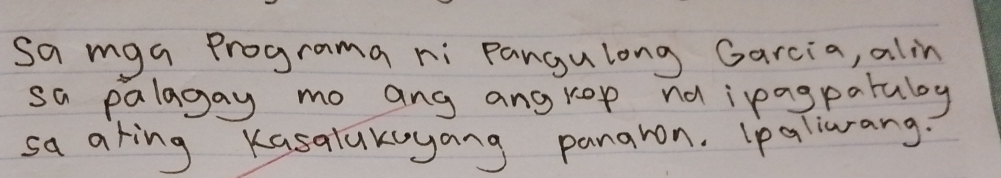 Sa mga Programa ni Pangulong Garcia, alin
sa palagay mo ang angkop na ipagpatuloy
sa ating kasalukuyang panahon. Ipaliwanag.